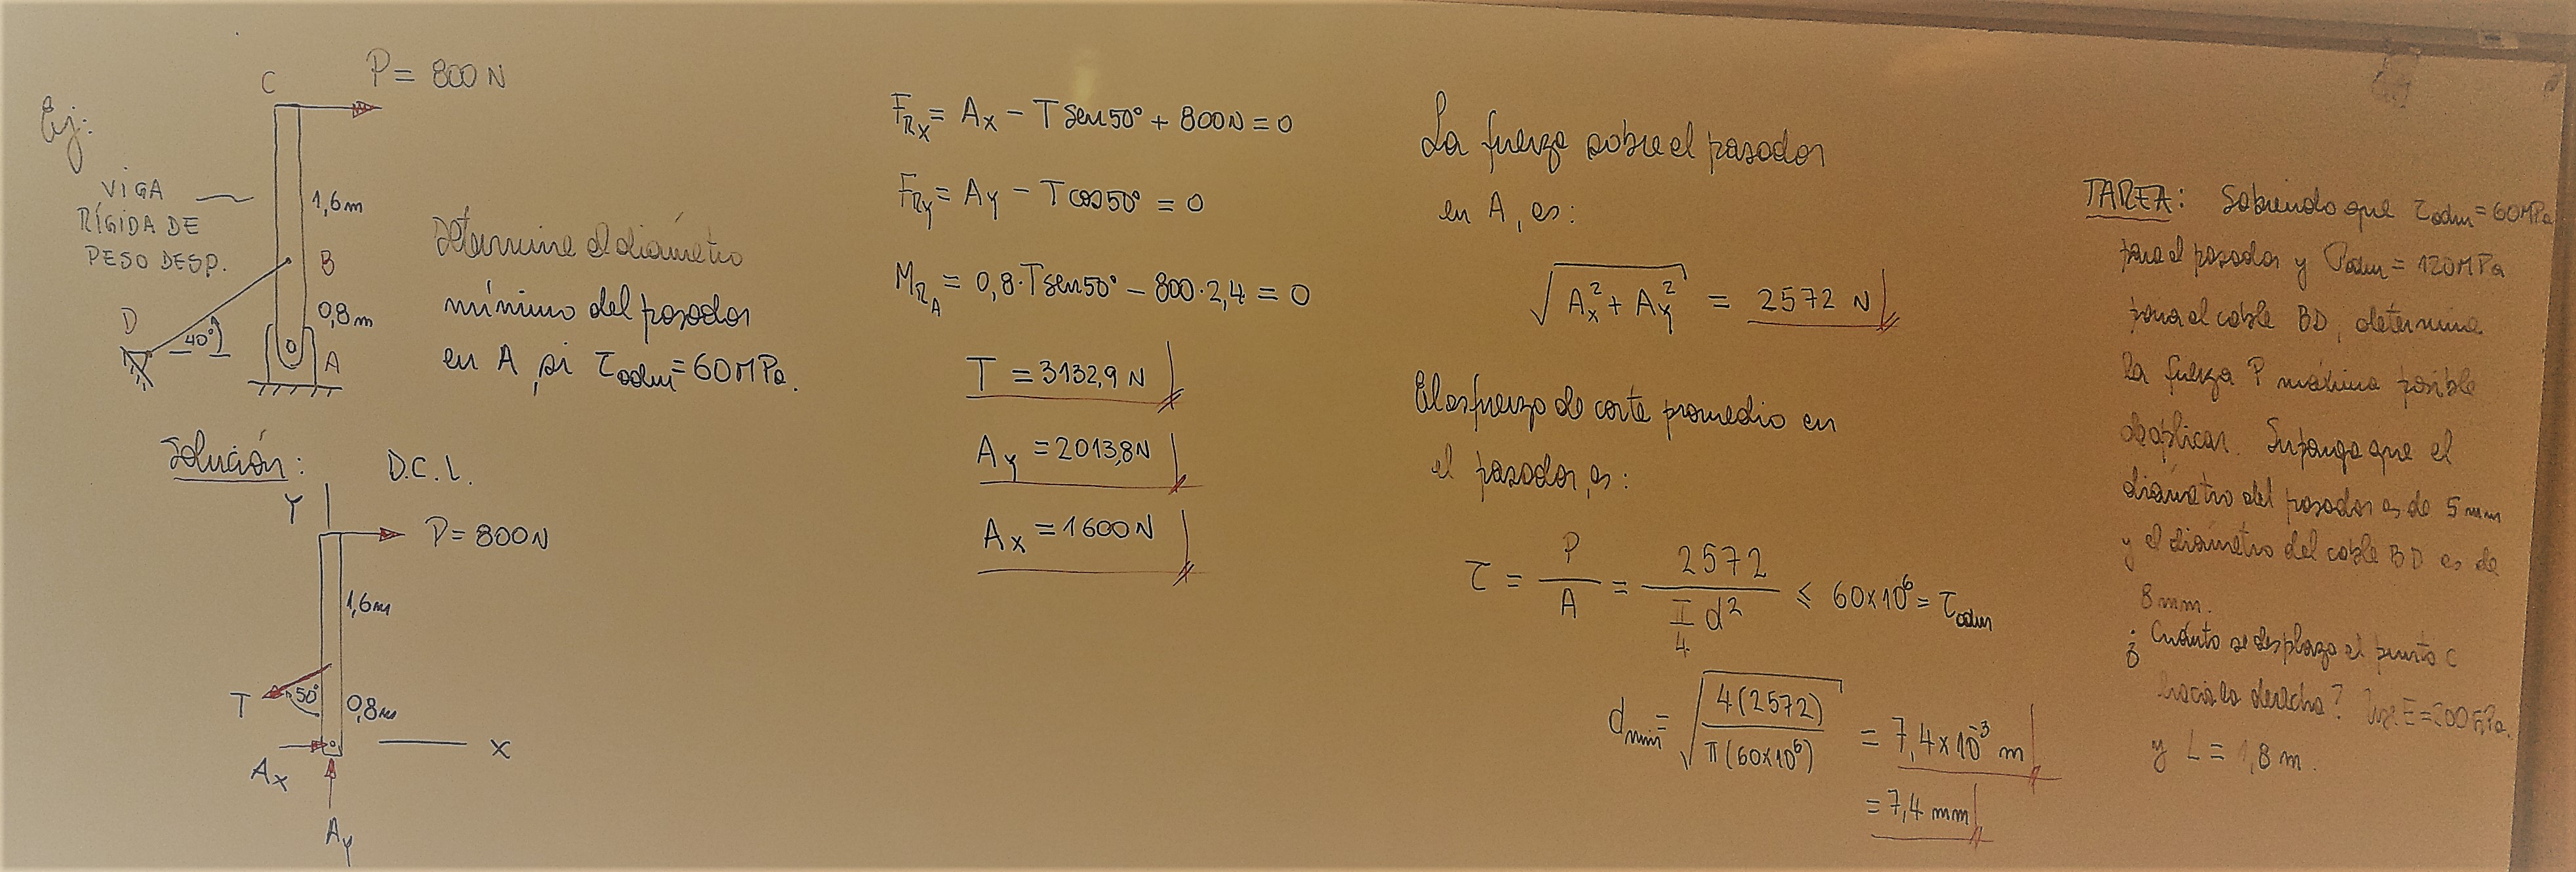 Ej:
C
P = 800 N
VIGA
RÍGIDA DE
PESO DESP.
1,6 m
B
0,8 m
D
40°
A
Determine el diámetro
mínimo del pasador
en A, si τadm = 60 MPa.
Solución:
D.C.L.
Y
P = 800 N
1,6 m
T
50°
0,8 m
X
Ax
Ay
FRx = Ax − T sen 50° + 800 N = 0
FRy = Ay − T cos 50° = 0
MRA = 0,8 · T sen 50° − 800 · 2,4 = 0
T = 3132,9 N
Ay = 2013,8 N
Ax = 1600 N
La fuerza sobre el pasador
en A, es:
√(Ax² + Ay²) = 2572 N
El esfuerzo de corte promedio en
el pasador, es:
τ = P/A = 2572/(π/4 d²) ≤ 60×10⁶ = τadm
dmin = √(4(2572)/(π(60×10⁶))) = 7,4×10⁻³ m
= 7,4 mm
TAREA: Sabiendo que τadm = 60 MPa
para el pasador y σadm = 120 MPa
para el cable BD, determine
la fuerza P máxima posible
de aplicar. Suponga que el
diámetro del pasador es de 5 mm
y el diámetro del cable BD es de
8 mm.
¿Cuánto se desplaza el punto C
hacia la derecha? Use E = 200 GPa.
y L = 1,8 m.